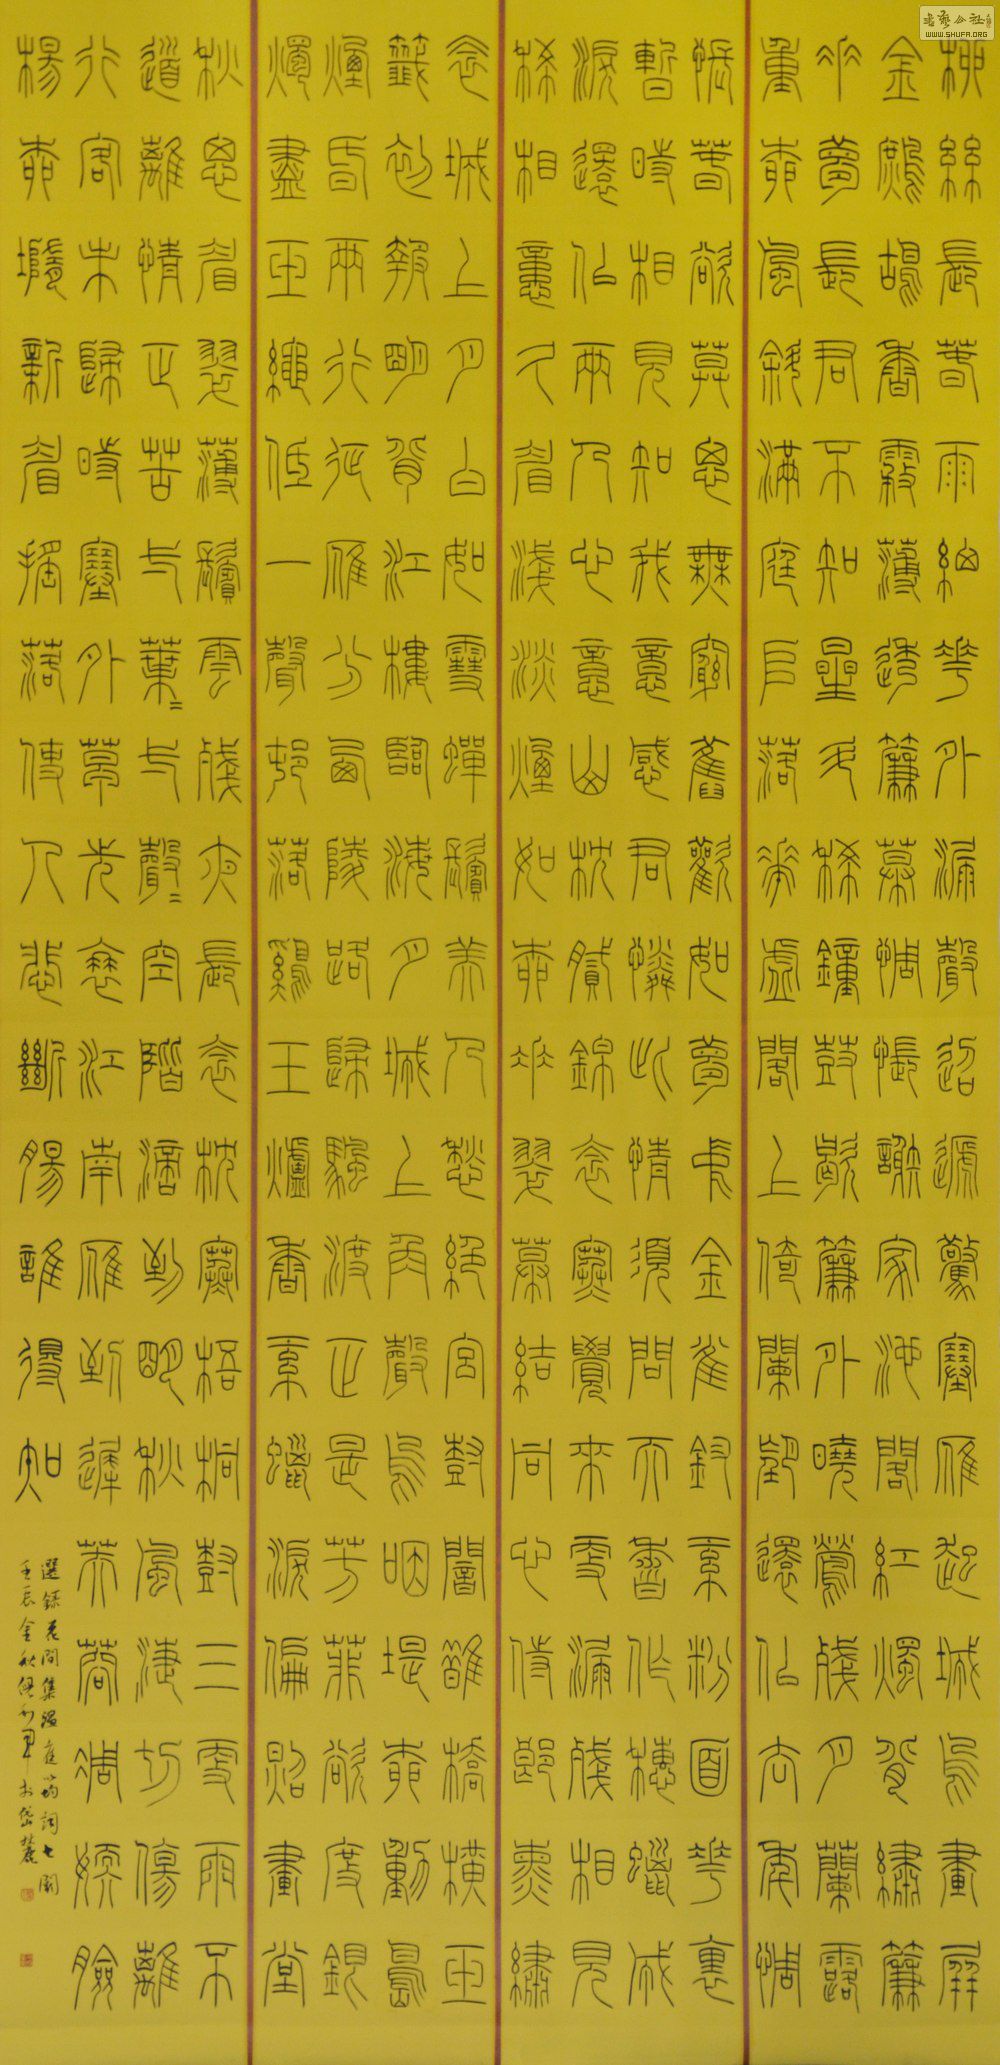 柳絲長春雨細花外漏聲迢遞驚塞雁起城烏畫屏
金鷓鴣香霧薄透簾幕惆悵謝家池閣紅燭背繡簾
垂夢長君不知星斗稀鐘鼓歇簾外曉鶯殘月蘭露
重柳風斜滿庭堆落花虛閣上倚闌望還似去年惆
悵春欲暮思無窮舊歡如夢中金雀釵紅粉面花裏
暫時相見知我意感君憐此情須問天香作穗蠟成
淚還似兩人心意山枕膩錦衾寒覺來更漏殘相見
稀相憶久眉淺淡煙如柳垂翠幕結同心待郎熏繡
衾城上月白如雪蟬鬢美人愁絕宮樹暗鵲橋橫玉
籤初報明背江樓臨海月城上角聲嗚咽堤柳動島
煙昏兩行征雁分西陵路歸帆渡正是芳菲欲度銀
燭盡玉繩低一聲村落雞玉爐香紅蠟淚偏照畫堂
秋思眉翠薄鬢雲殘夜長衾枕寒梧桐樹三更雨不
道離情正苦一葉葉一聲聲空階滴到明秋風淒切傷離
行客未歸時塞外草先衰江南雁到遲芙蓉凋嫩臉
楊柳墮新眉搖落使人悲斷腸誰得知
選錄花間集溫庭筠詞七闋
壬辰金秋於岱麓
書藝公社
WWW.SHUFA.ORG